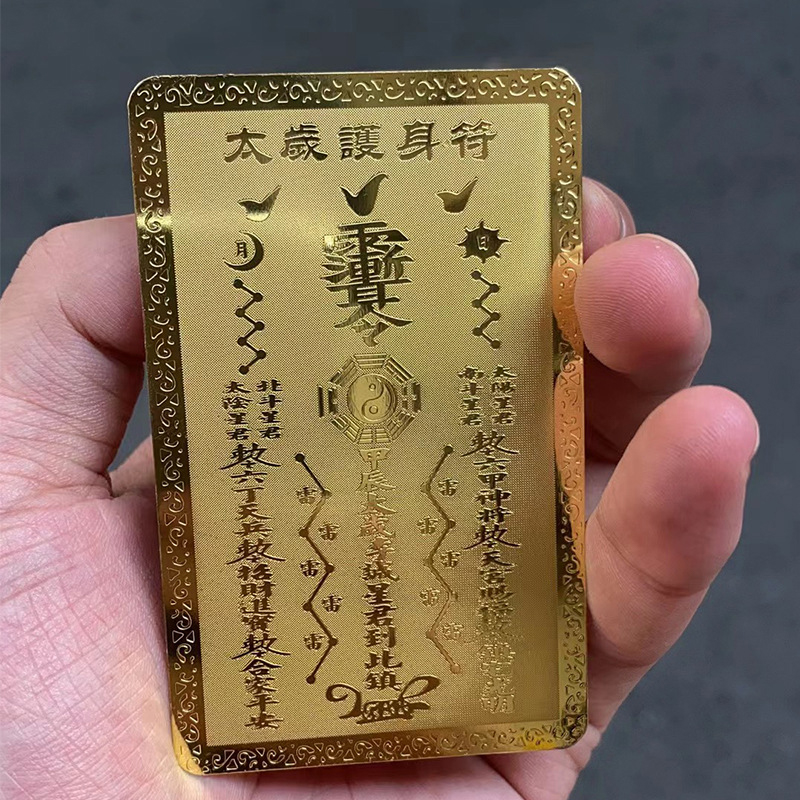 太歲護身符
日
月
太陽星君
南斗星君
敕六甲神將敕天官賜福
甲辰太歲李誠星君到此鎮
北斗星君
太陰星君
敕六丁天兵敕招財進寶敕合家平安
雷
雷
雷
雷
雷
雷
雷
雷
雷
雷